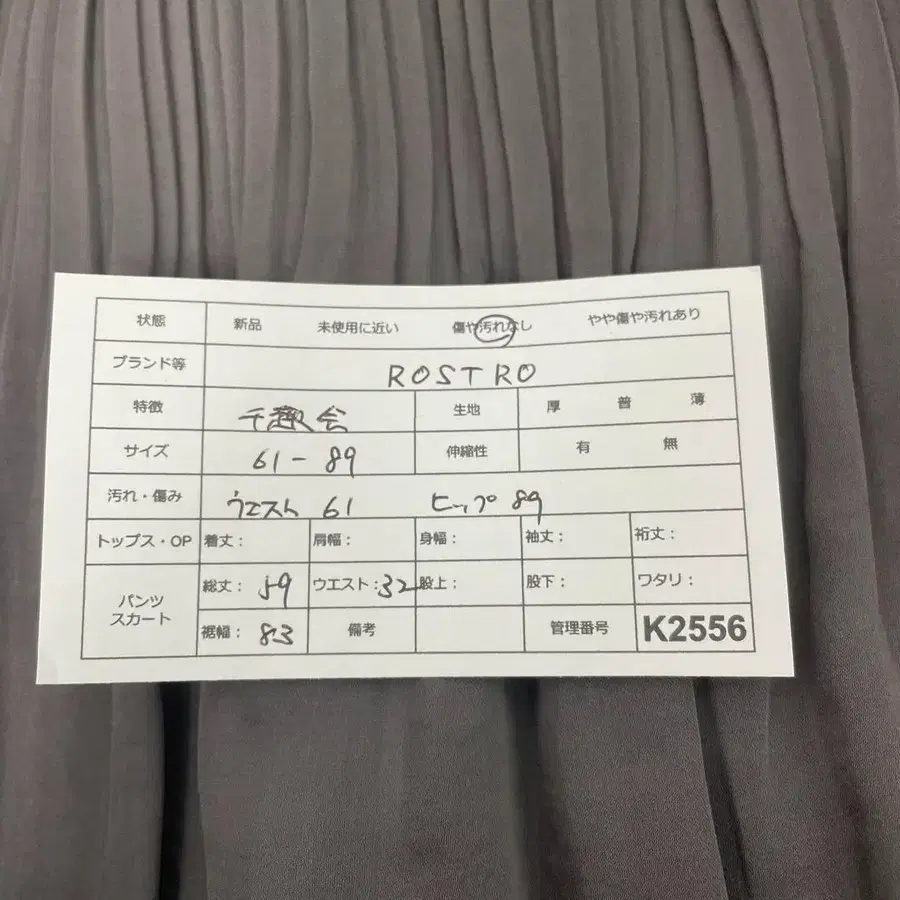 状態 新品 未使用に近い 傷や汚れなし やや傷や汚れあり
ブランド等 ROSTRO
特徴 千趣会 生地 厚 普 薄
サイズ 61-89 伸縮性 有 無
汚れ・傷み ウエスト 61 ヒップ 89
トップス・OP 着丈: 肩幅: 身幅: 袖丈: 裄丈:
パンツ スカート 総丈: 59 ウエスト: 32 股上: 股下: ワタリ:
裾幅: 83 備考 管理番号 K2556